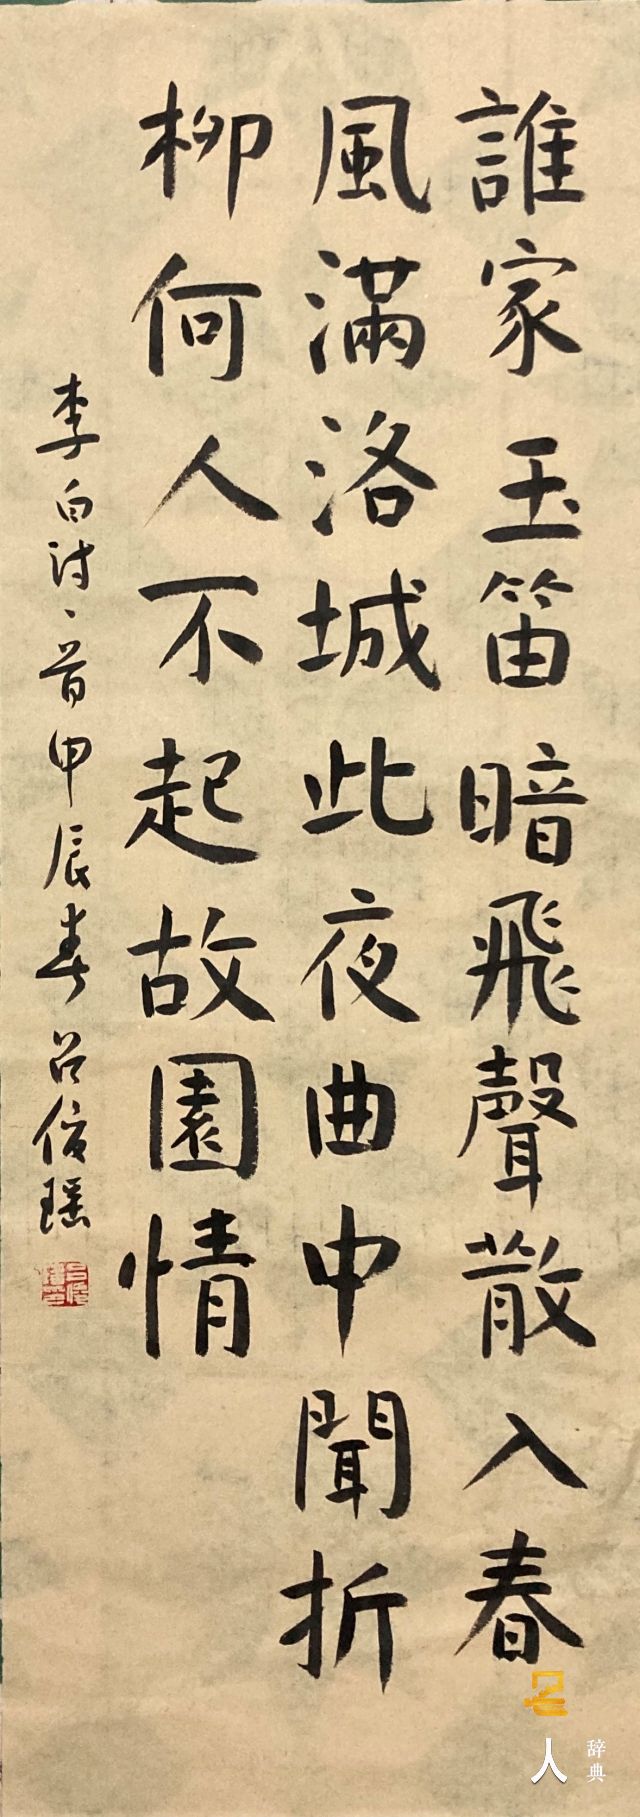 誰家玉笛暗飛聲散入春
風滿洛城此夜曲中聞折
柳何人不起故園情
李白詩一首甲辰春吕俊瑶
名人
辞典